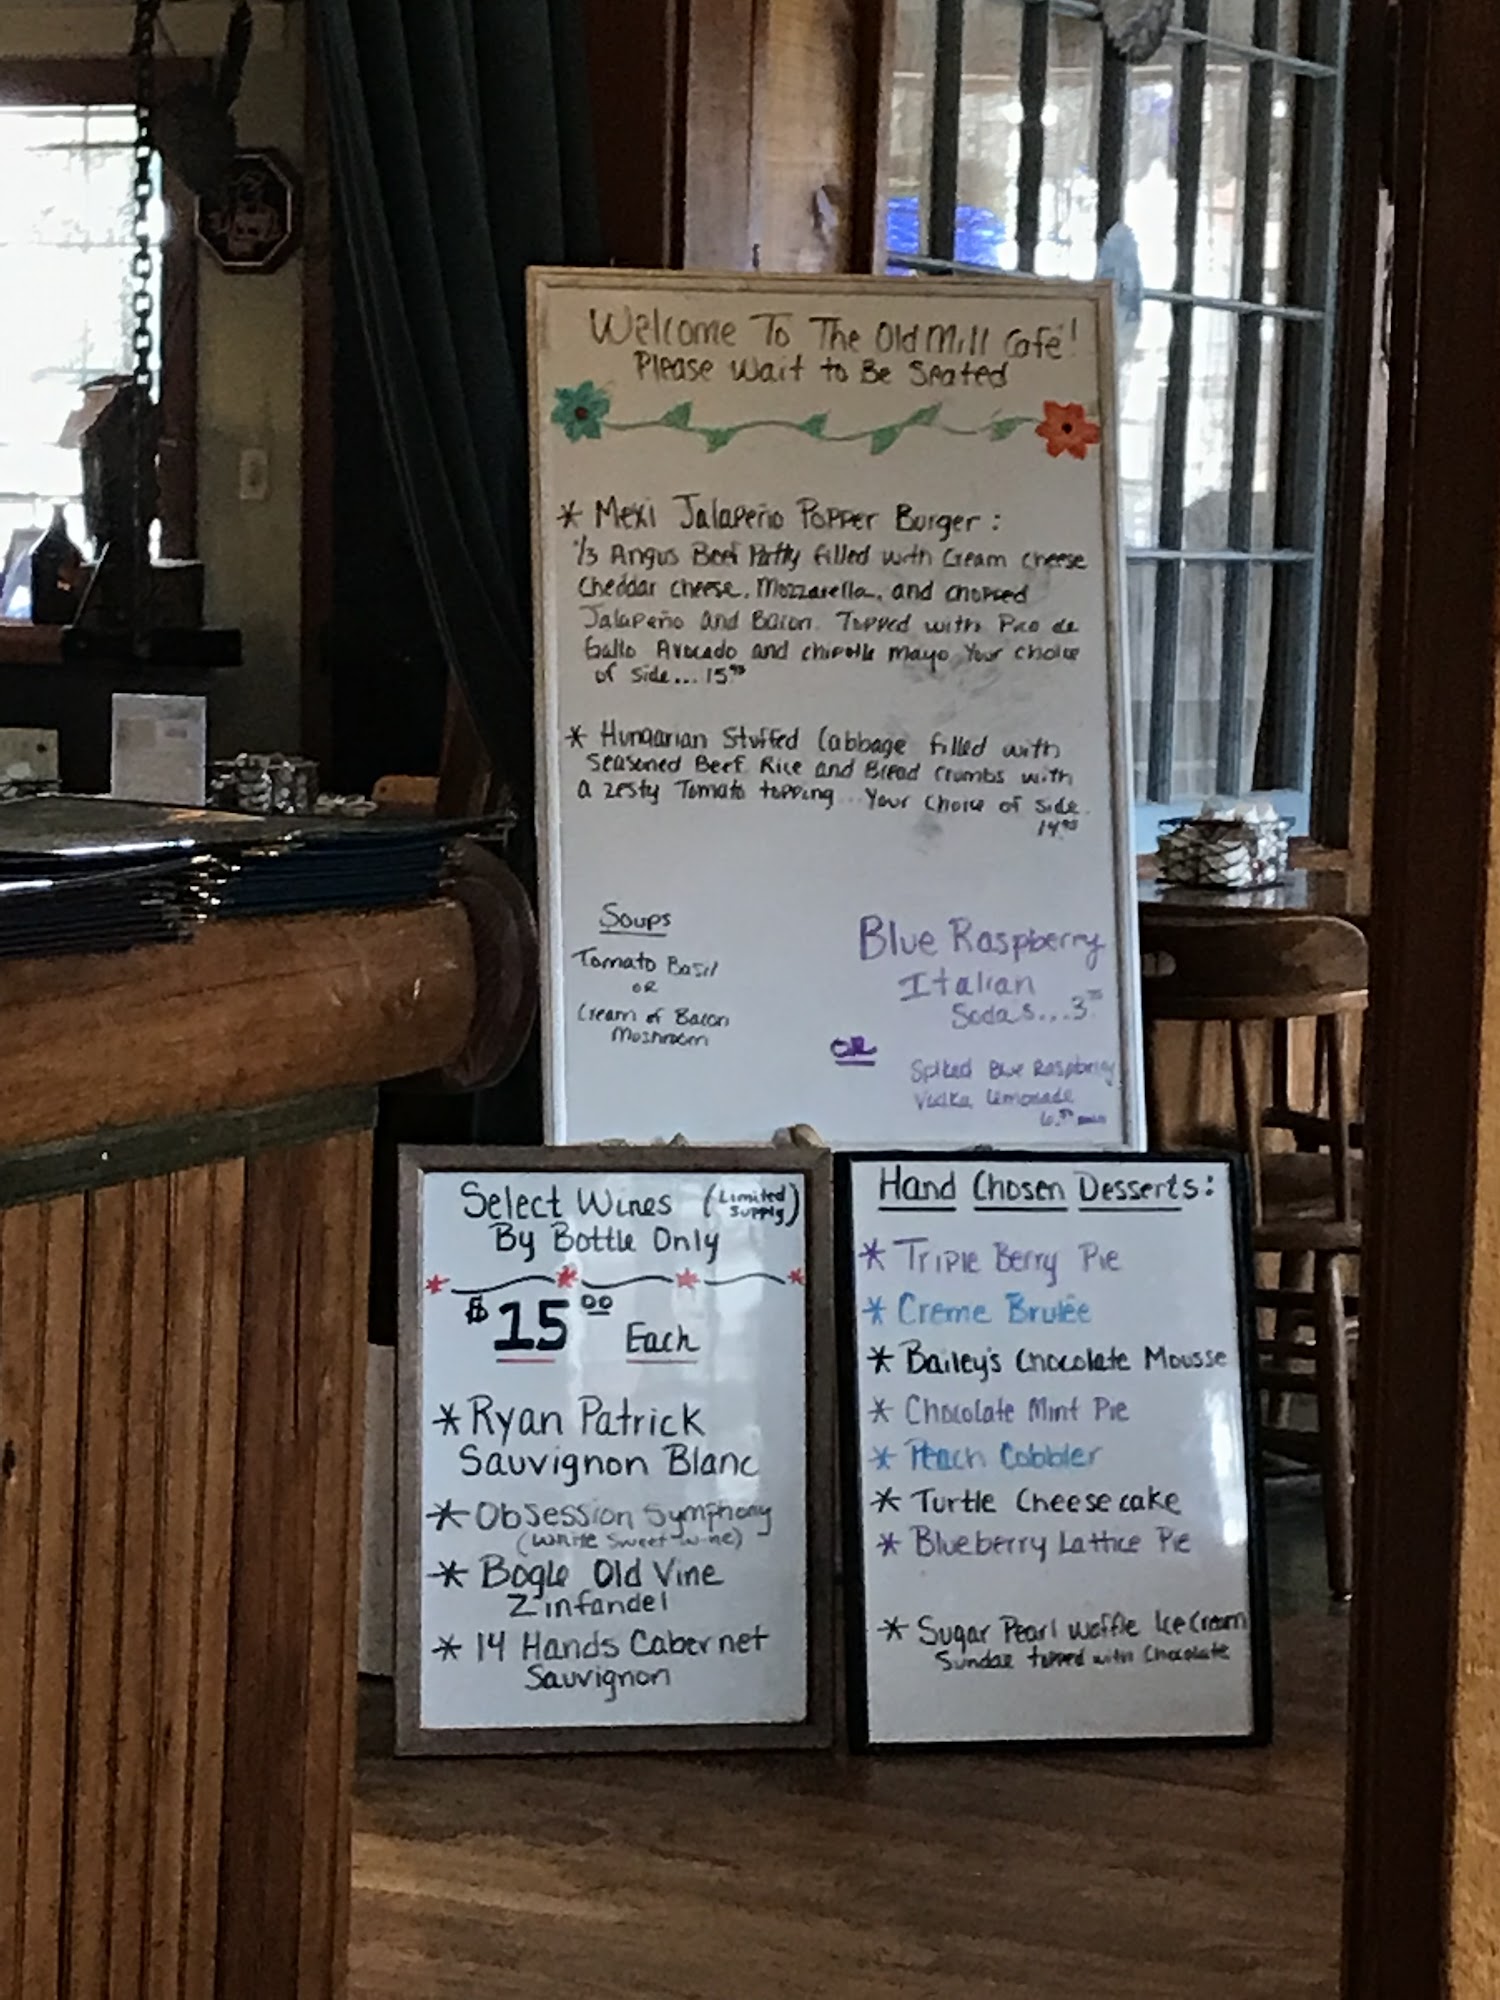 Welcome To The Old Mill Café!
Please Wait to Be Seated
* Mexi Jalapeño Popper Burger:
1/3 Angus Beef Patty filled with Cream Cheese
Cheddar Cheese, Mozzarella, and chopped
Jalapeño and Bacon. Topped with Pico de
Gallo Avocado and chipotle mayo Your choice
of side... 15
* Hungarian Stuffed Cabbage filled with
Seasoned Beef Rice and Bread Crumbs with
a zesty Tomato topping... Your choice of side.
14.95
Soups
Tomato Basil
OR
Cream of Bacon
Moshroom
Blue Raspberry
Italian
Sodas...3
OR
Spiked Blue Raspberry
Vodka Lemonade
Select Wines (Limited Supply)
By Bottle Only
$15.00 Each
* Ryan Patrick
Sauvignon Blanc
* Obsession Symphony
(White Sweet Wine)
* Bogle Old Vine
Zinfandel
* 14 Hands Cabernet
Sauvignon
Hand Chosen Desserts:
* Triple Berry Pie
* Creme Brulée
* Bailey's Chocolate Mousse
* Chocolate Mint Pie
* Peach Cobbler
* Turtle Cheesecake
* Blueberry Lattice Pie
* Sugar Pearl Waffle Ice Cream
Sundae topped with Chocolate